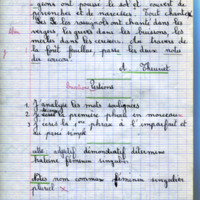 gions ont poussé le sol est couvert de
pervenches et de narcisses. Tout chante
Les rossignols ont chanté dans les
vergers, les grives dans les buissons, les
merles dans les cerisiers. Au travers de
la forêt feuillue passe les deux notes
du coucou.
A. Theuriet
Questions
1 J'analyse les mots soulignés
2 J'écris la première phrase en morceau
3 J'écris la phrase à l'imparfait et
au passé simple
cette adjectif démonstratif détermine
haleine féminin singulier.
nom commun féminin singulier
pluriel x